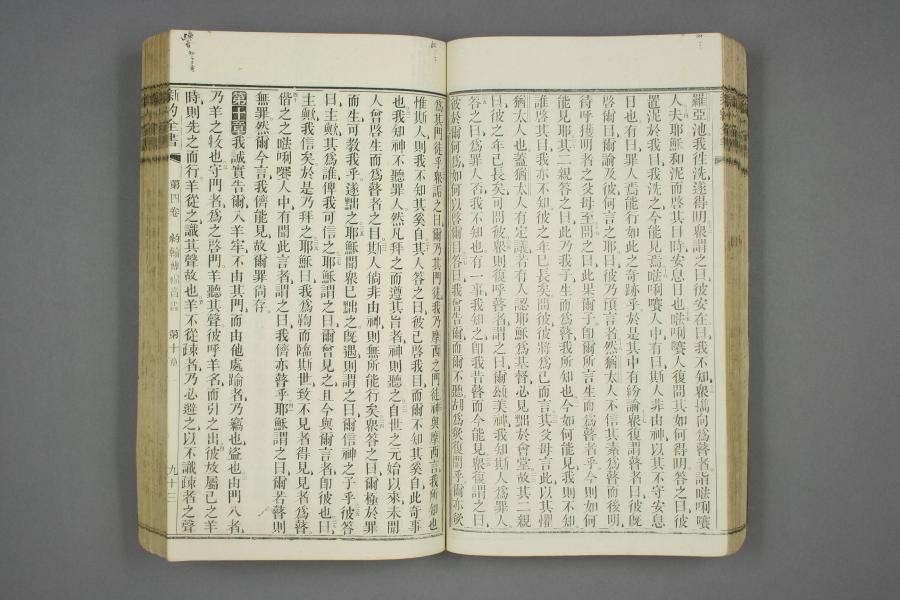 羅亞池我往洗遂得明衆謂之曰彼安在曰我不知衆攜向爲瞽者詣㗭唎㘔
人夫耶穌和泥而啓其目時安息日也㗭唎㘔人復問其如何得明答之曰彼
置泥於我目我洗之今能見焉㗭唎㘔人中有曰斯人非由神以其不守安息
日也有曰罪人焉能行如此之奇跡乎於是其中有紛論衆復謂瞽者曰彼旣
啓爾目爾論及彼何言之耶曰彼乃預言者然猶太人不信其素爲瞽而後明
待呼獲明者之父母至問之曰此果爾子卽爾所言生而爲瞽者乎今則如何
能見耶其二親答之曰此乃我子生而爲瞽我所知也今如何能見我則不知
誰啓其目我亦不知彼之年已長矣問彼彼將爲己而言其父母言此以其懼
猶太人也蓋猶太人有定議若有人認耶穌爲基督必見黜於會堂故其二親
曰彼之年已長矣可問彼衆則復呼瞽者謂之曰爾頌美神我知斯人爲罪人
答之曰其爲罪人否我不知也有一事我知之卽我昔瞽而今能見衆復謂之曰
彼於爾何爲如何以啓爾目答曰我曾告爾而爾不聽胡爲欲復聞乎爾亦欲
爲其門徒乎衆詬之曰爾乃其門徒我乃摩西之門徒神與摩西言我所知也
惟斯人則我不知其奚自其人答之曰彼已啓我目而爾不知其奚自此奇事
也我知神不聽罪人然凡拜之而遵其旨者神則聽之自世之元始以來未聞
人曾啓生而爲瞽者之目斯人倘非由神則無所能行矣衆答之曰爾極於罪
而生可敎我乎遂黜之耶穌聞衆已黜之旣遇則謂之曰爾信神之子乎彼答
曰主歟其爲誰俾我可信之耶穌謂之曰爾曾見之且今與爾言者卽彼也曰
主歟我信矣於是乃拜之耶穌曰我爲鞫而臨斯世致不見者得見見者爲瞽
偕之之㗭唎㘔人中有聞此言者謂之曰我儕亦瞽乎耶穌謂之曰爾若瞽則
無罪然爾今言我儕能見故爾罪尙存
第十章我誠實告爾入羊牢不由其門而由他處踰者乃竊也盜也由門入者
乃羊之牧也守門者爲之啓門羊聽其聲彼呼羊名而引之出彼放屬己之羊
時則先之而行羊從之識其聲故也羊不從疎者乃必避之以不識疎者之聲
新約全書 第四卷 約翰傳福音書 第十章 九十三